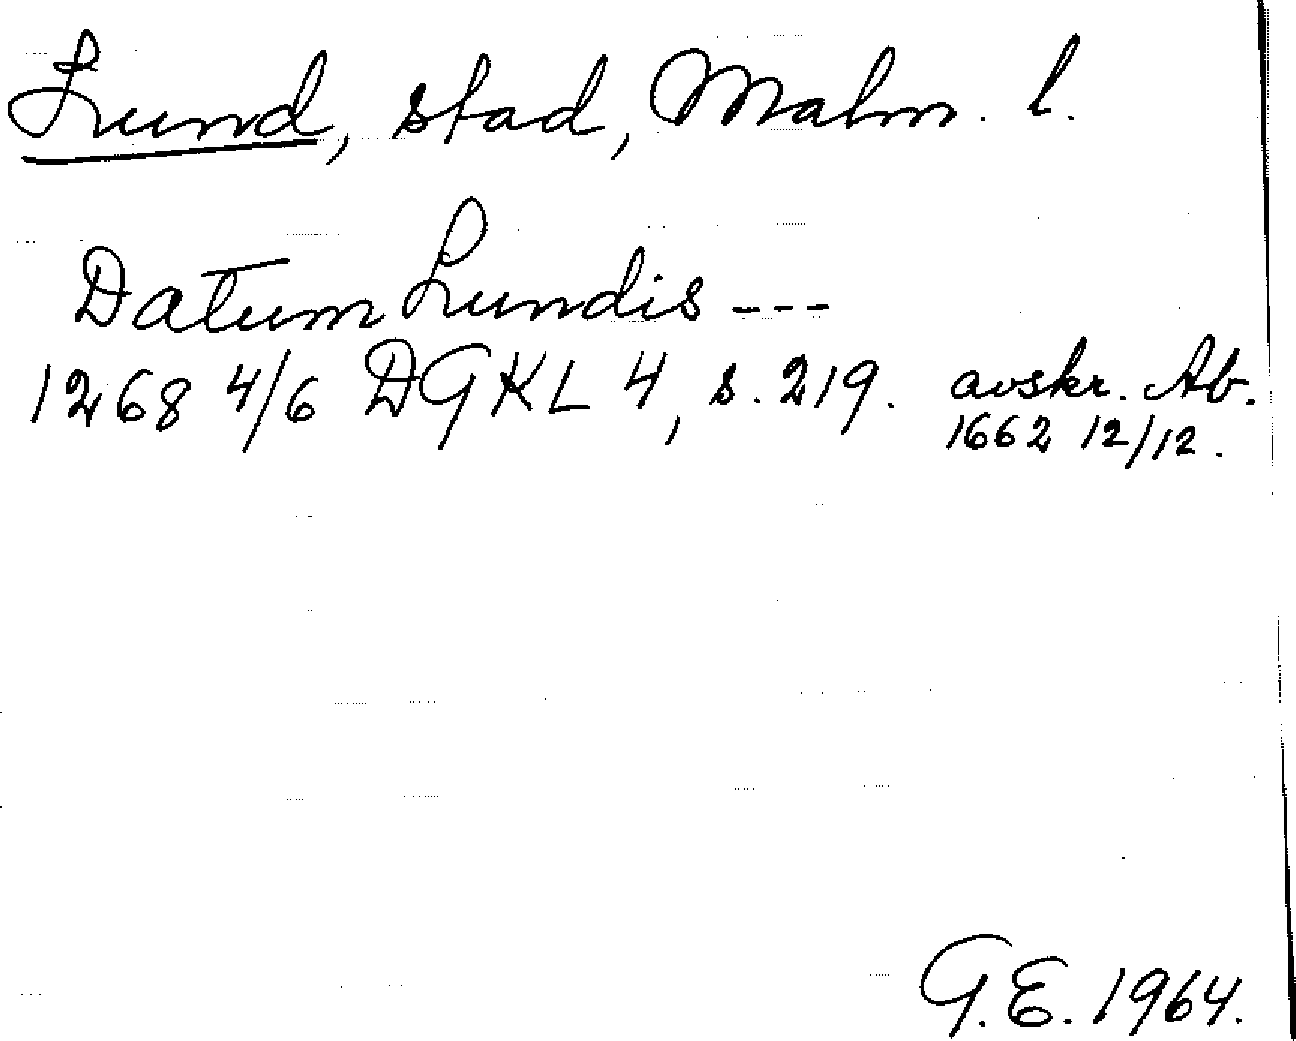 Lund, stad, Malm. l.
Datum Lundis ---
1268 4/6 DGKL 4, s. 219. avskr. Ab.
1662 12/12.
G.E. 1964.